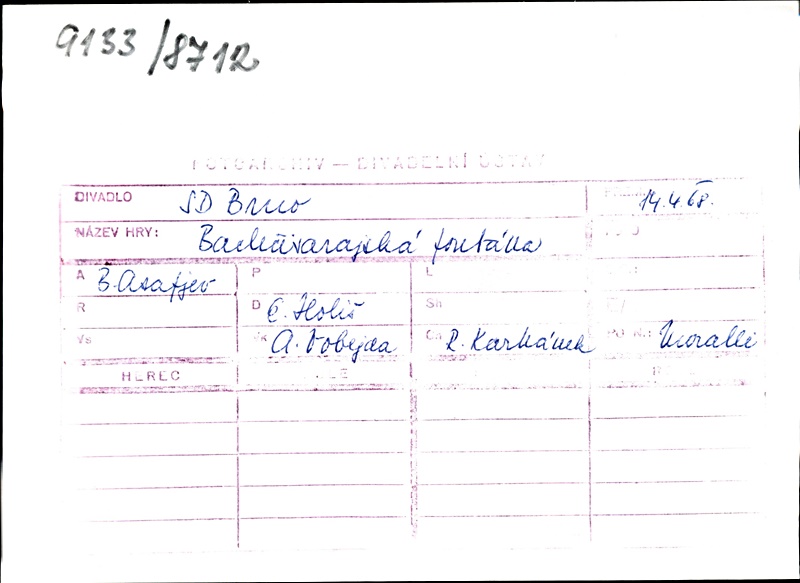 9133/8712
FOTOARCHIV — DIVADELNÍ ÚSTAV
DIVADLO SD Brno 14.4.68.
NÁZEV HRY: Bachčisarajská fontána
A B. Asafjev P L
R D E. Holiš Sh
Vs A. Vobejda R. Karhánek Moralli
HEREC